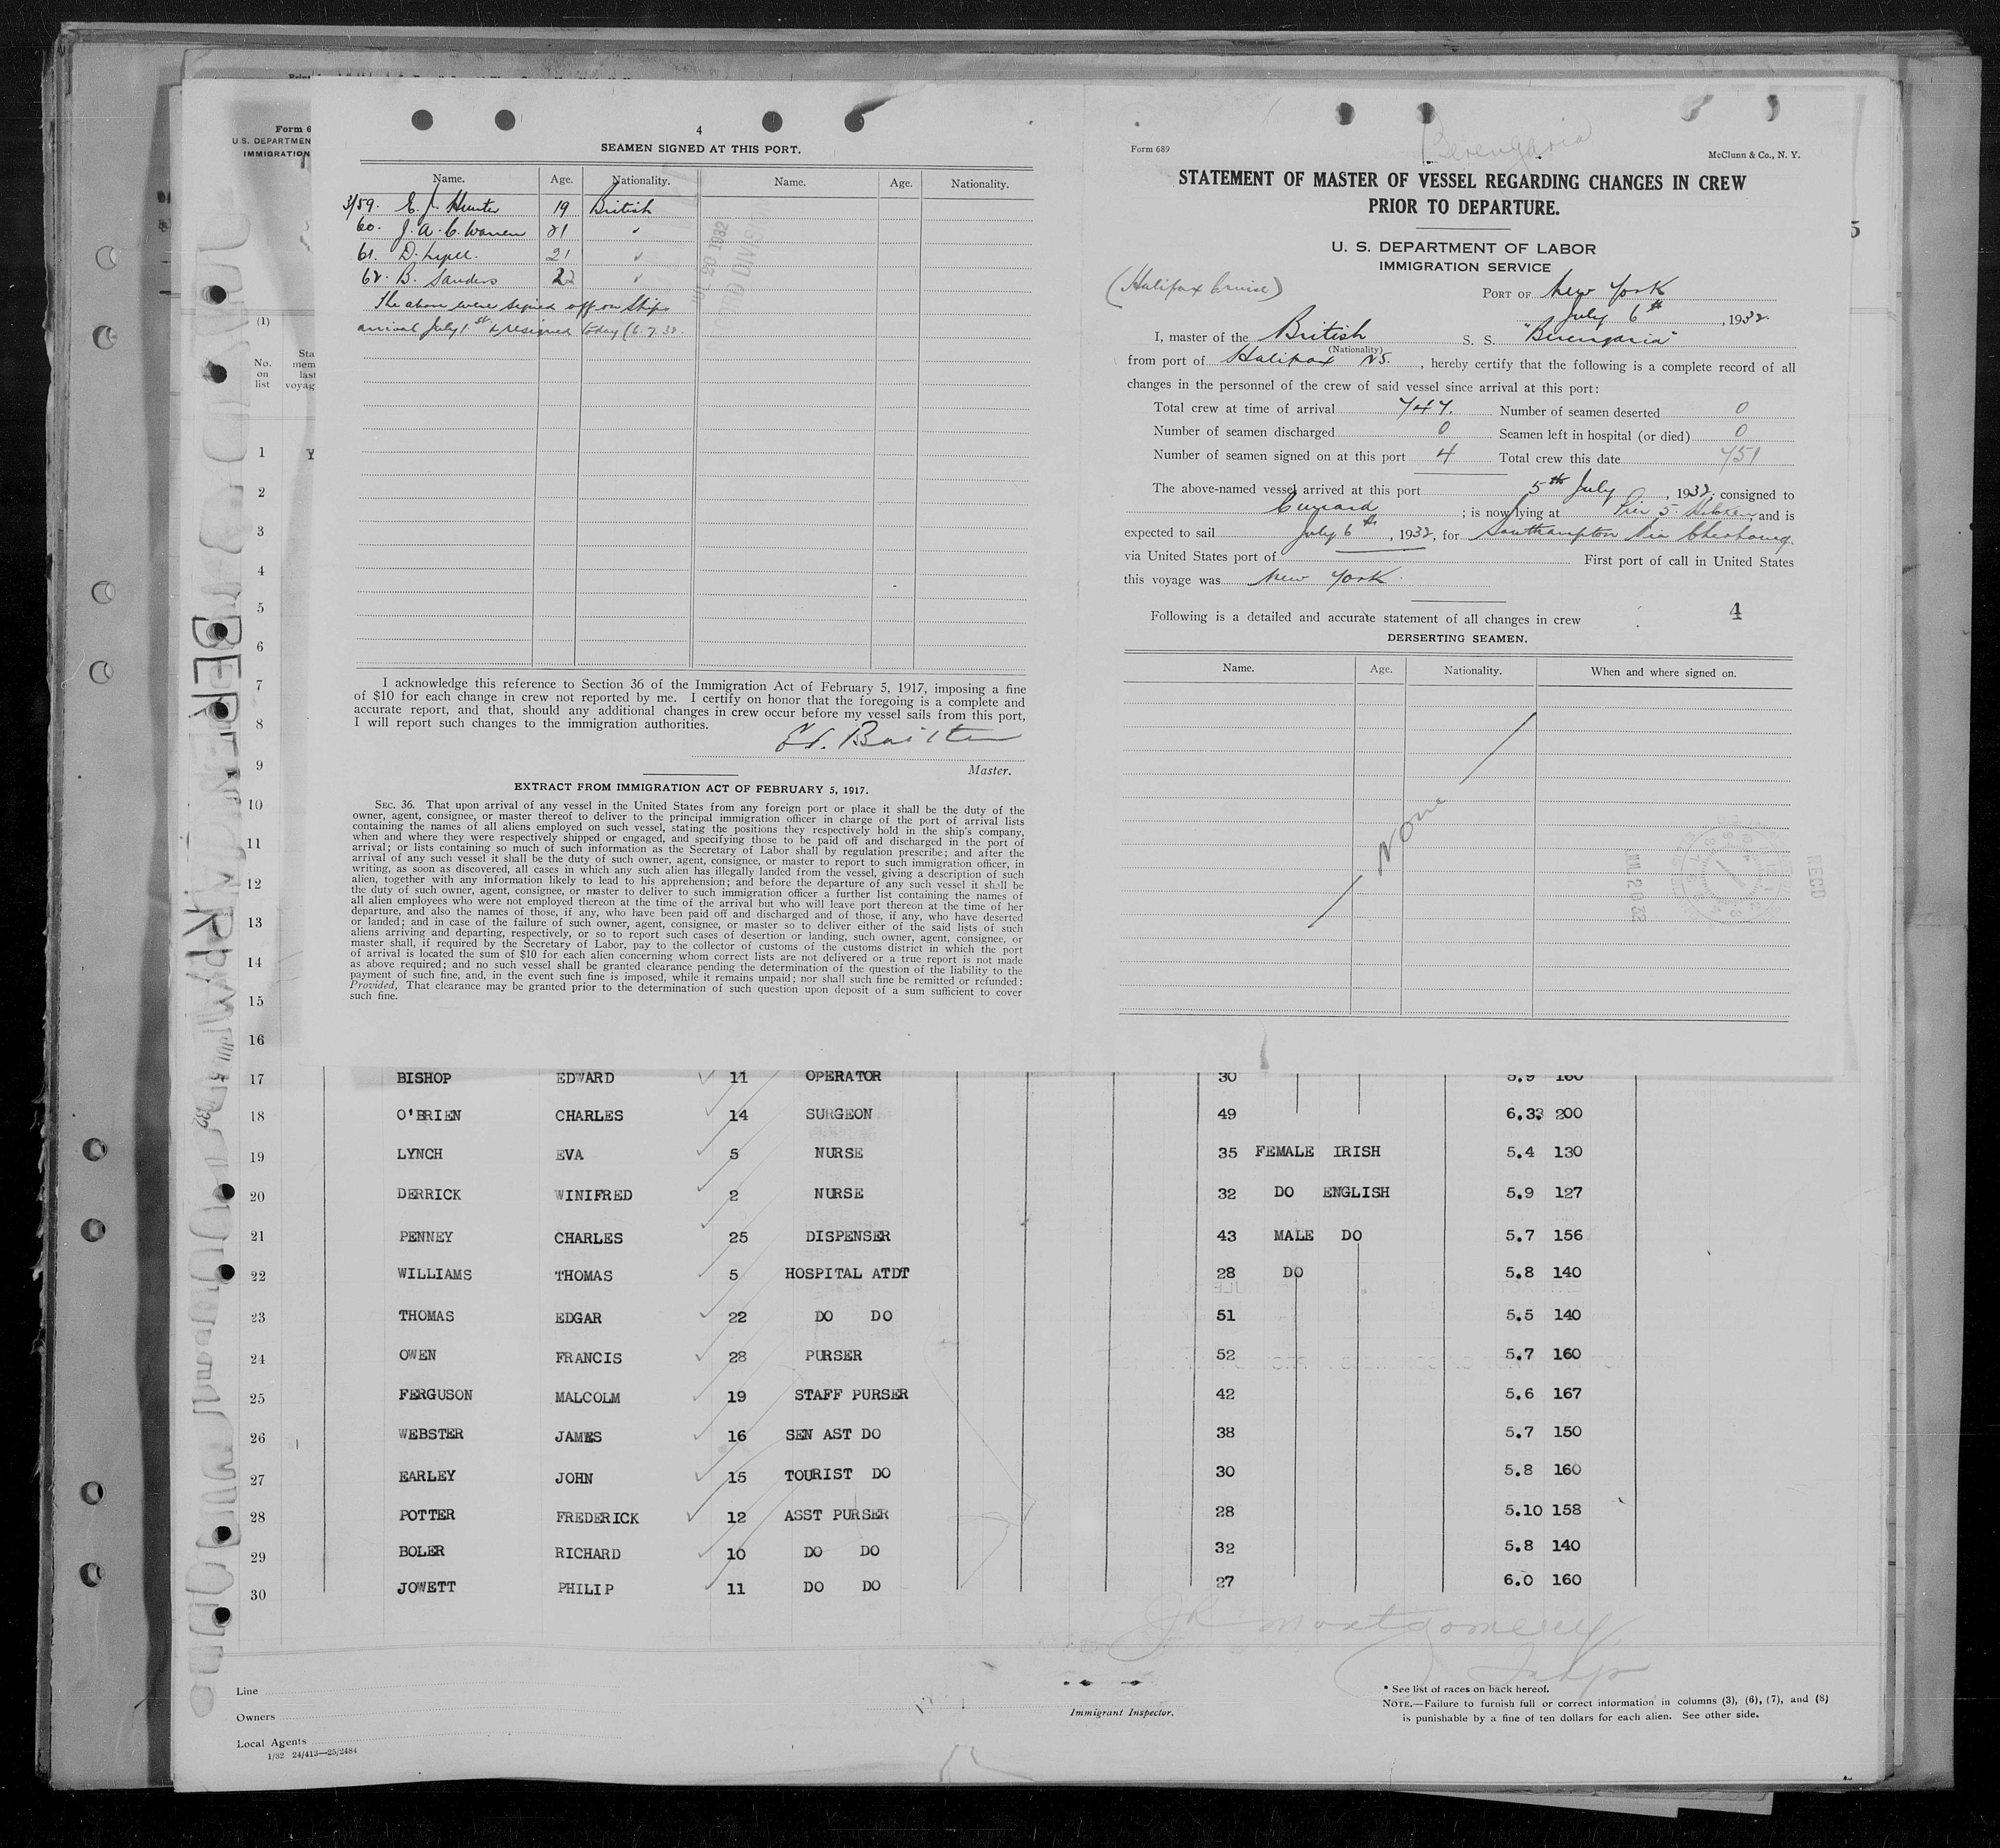 Form 6
U.S. DEPARTMEN
IMMIGRATION
(1)
No. on list
Sta
mem
last
voyag
4
SEAMEN SIGNED AT THIS PORT.
Name. Age. Nationality. Name. Age. Nationality.
3/59. E. J. Hunter 19 British
60. J. A. C. Warren 21 "
61. D. 21 "
62. B. Sanders 22 "
The above were signed off on ships
arrival July 1st & resigned today (6.7.32.
JUL 20 1932
RECORD DIVISION
I acknowledge this reference to Section 36 of the Immigration Act of February 5, 1917, imposing a fine
of $10 for each change in crew not reported by me. I certify on honor that the foregoing is a complete and
accurate report, and that, should any additional changes in crew occur before my vessel sails from this port,
I will report such changes to the immigration authorities.
Master.
EXTRACT FROM IMMIGRATION ACT OF FEBRUARY 5, 1917.
SEC. 36. That upon arrival of any vessel in the United States from any foreign port or place it shall be the duty of the
owner, agent, consignee, or master thereof to deliver to the principal immigration officer in charge of the port of arrival lists
containing the names of all aliens employed on such vessel, stating the positions they respectively hold in the ship's company,
when and where they were respectively shipped or engaged, and specifying those to be paid off and discharged in the port of
arrival; or lists containing so much of such information as the Secretary of Labor shall by regulation prescribe; and after the
arrival of any such vessel it shall be the duty of such owner, agent, consignee, or master to report to such immigration officer, in
writing, as soon as discovered, all cases in which any such alien has illegally landed from the vessel, giving a description of such
alien, together with any information likely to lead to his apprehension; and before the departure of any such vessel it shall be
the duty of such owner, agent, consignee, or master to deliver to such immigration officer a further list containing the names of
all alien employees who were not employed thereon at the time of the arrival but who will leave port thereon at the time of her
departure, and also the names of those, if any, who have been paid off and discharged and of those, if any, who have deserted
or landed; and in case of the failure of such owner, agent, consignee, or master so to deliver either of the said lists of such
aliens arriving and departing, respectively, or so to report such cases of desertion or landing, such owner, agent, consignee, or
master shall, if required by the Secretary of Labor, pay to the collector of customs of the customs district in which the port
of arrival is located the sum of $10 for each alien concerning whom correct lists are not delivered or a true report is not made
as above required; and no such vessel shall be granted clearance pending the determination of the question of the liability to the
payment of such fine, and, in the event such fine is imposed, while it remains unpaid; nor shall such fine be remitted or refunded:
Provided, That clearance may be granted prior to the determination of such question upon deposit of a sum sufficient to cover
such fine.
Berengaria
Form 689 McClunn & Co., N. Y.
STATEMENT OF MASTER OF VESSEL REGARDING CHANGES IN CREW
PRIOR TO DEPARTURE.
U. S. DEPARTMENT OF LABOR
IMMIGRATION SERVICE
(Halifax Cruise)
PORT OF New York
July 6th, 1932.
I, master of the British S. S. "Berengaria"
(Nationality)
from port of Halifax NS., hereby certify that the following is a complete record of all
changes in the personnel of the crew of said vessel since arrival at this port:
Total crew at time of arrival 747. Number of seamen deserted 0
Number of seamen discharged 0 Seamen left in hospital (or died) 0
Number of seamen signed on at this port 4 Total crew this date 751
The above-named vessel arrived at this port 5th July, 1932, consigned to
Cunard; is now lying at Pier 5. Hoboken, and is
expected to sail July 6th, 1932, for Southampton Via Cherbourg.
via United States port of First port of call in United States
this voyage was New York.
Following is a detailed and accurate statement of all changes in crew 4
DERSERTING SEAMEN.
Name. Age. Nationality. When and where signed on.
None
RECD
5
BERENGARIA
1
2
3
4
5
6
7
8
9
10
11
12
13
14
15
16
17 BISHOP EDWARD 11 OPERATOR 30 5.9 160
18 O'BRIEN CHARLES 14 SURGEON 49 6.33 200
19 LYNCH EVA 5 NURSE 35 FEMALE IRISH 5.4 130
20 DERRICK WINIFRED 2 NURSE 32 DO ENGLISH 5.9 127
21 PENNEY CHARLES 25 DISPENSER 43 MALE DO 5.7 156
22 WILLIAMS THOMAS 5 HOSPITAL ATDT 28 DO 5.8 140
23 THOMAS EDGAR 22 DO DO 51 5.5 140
24 OWEN FRANCIS 28 PURSER 52 5.7 160
25 FERGUSON MALCOLM 19 STAFF PURSER 42 5.6 167
26 WEBSTER JAMES 16 SEN AST DO 38 5.7 150
27 EARLEY JOHN 15 TOURIST DO 30 5.8 160
28 POTTER FREDERICK 12 ASST PURSER 28 5.10 158
29 BOLER RICHARD 10 DO DO 32 5.8 140
30 JOWETT PHILIP 11 DO DO 27 6.0 160
JR Montgomery
Insp
Line
Owners
Local Agents
1/32 24/413—25/2484
Immigrant Inspector.
* See list of races on back hereof.
NOTE.—Failure to furnish full or correct information in columns (3), (6), (7), and (8)
is punishable by a fine of ten dollars for each alien. See other side.